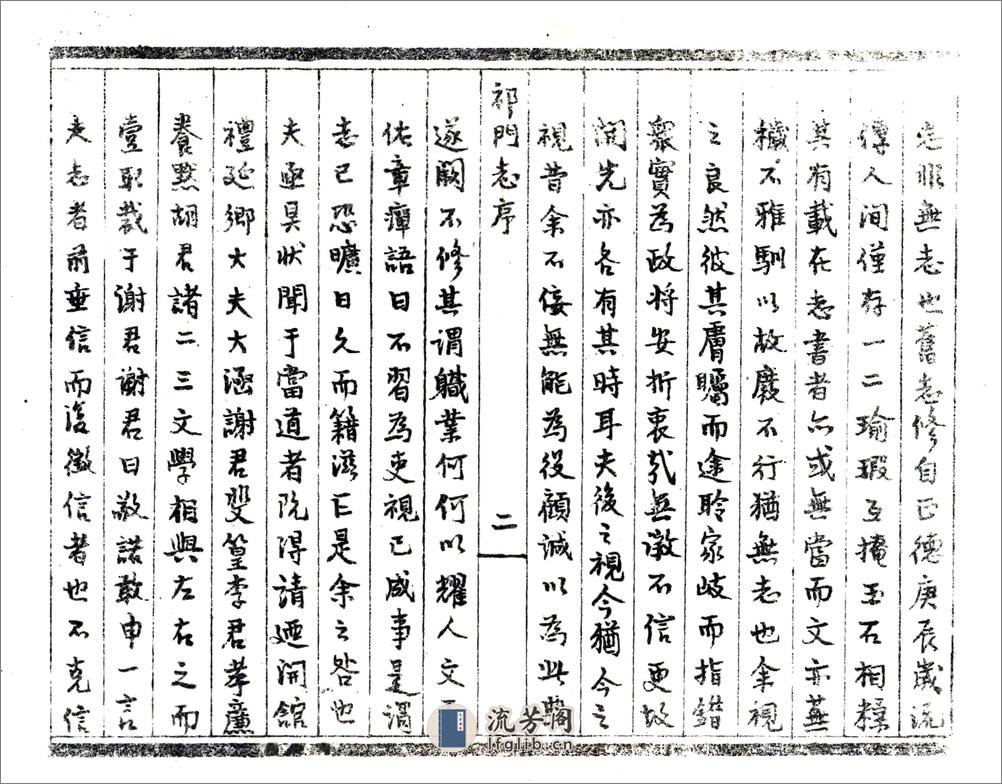 志非無志也舊志修自正德庚辰歲流
傳人间僅存一二瑜瑕互掩玉石相糅
其有載在志書者亦或無當而文亦蕪
穢不雅馴以故廢不行猶無志也余視
之良然彼其膚矚而途聆家歧而指錯
眾實為政將安折衷哉無徵不信更故
闻先亦各有其時耳夫後之視今猶今之
視昔余不佞無能為役顧誠以為此典
祁門志序
二
遂闕不修其謂職業何何以耀人文
佑章癉語曰不習為吏視已成事是謂
志已恐曠日久而籍滋亡是余之咎也
夫亟具狀聞于當道者既得請迺開館
禮延鄉大夫大涵謝君斐篁李君孝廉
養默胡君諸二三文學相與左右之而
壹取裁于謝君謝君曰敬諾敢申一言
夫志者前垂信而後徵信者也不克信
流芳閣
lfglib.cn